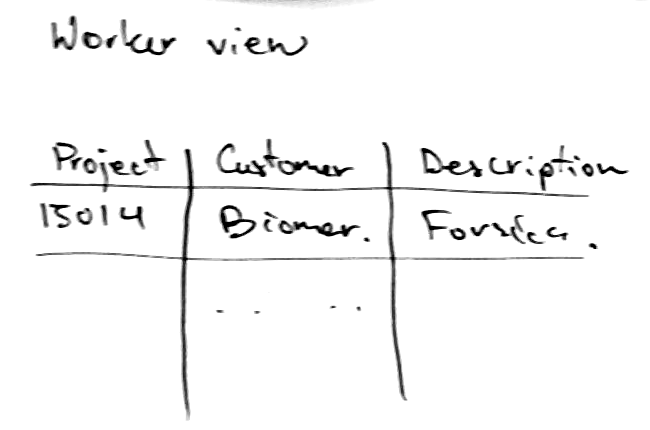 Worker view
Project | Customer | Description
15014 | Biomer.
.. ..